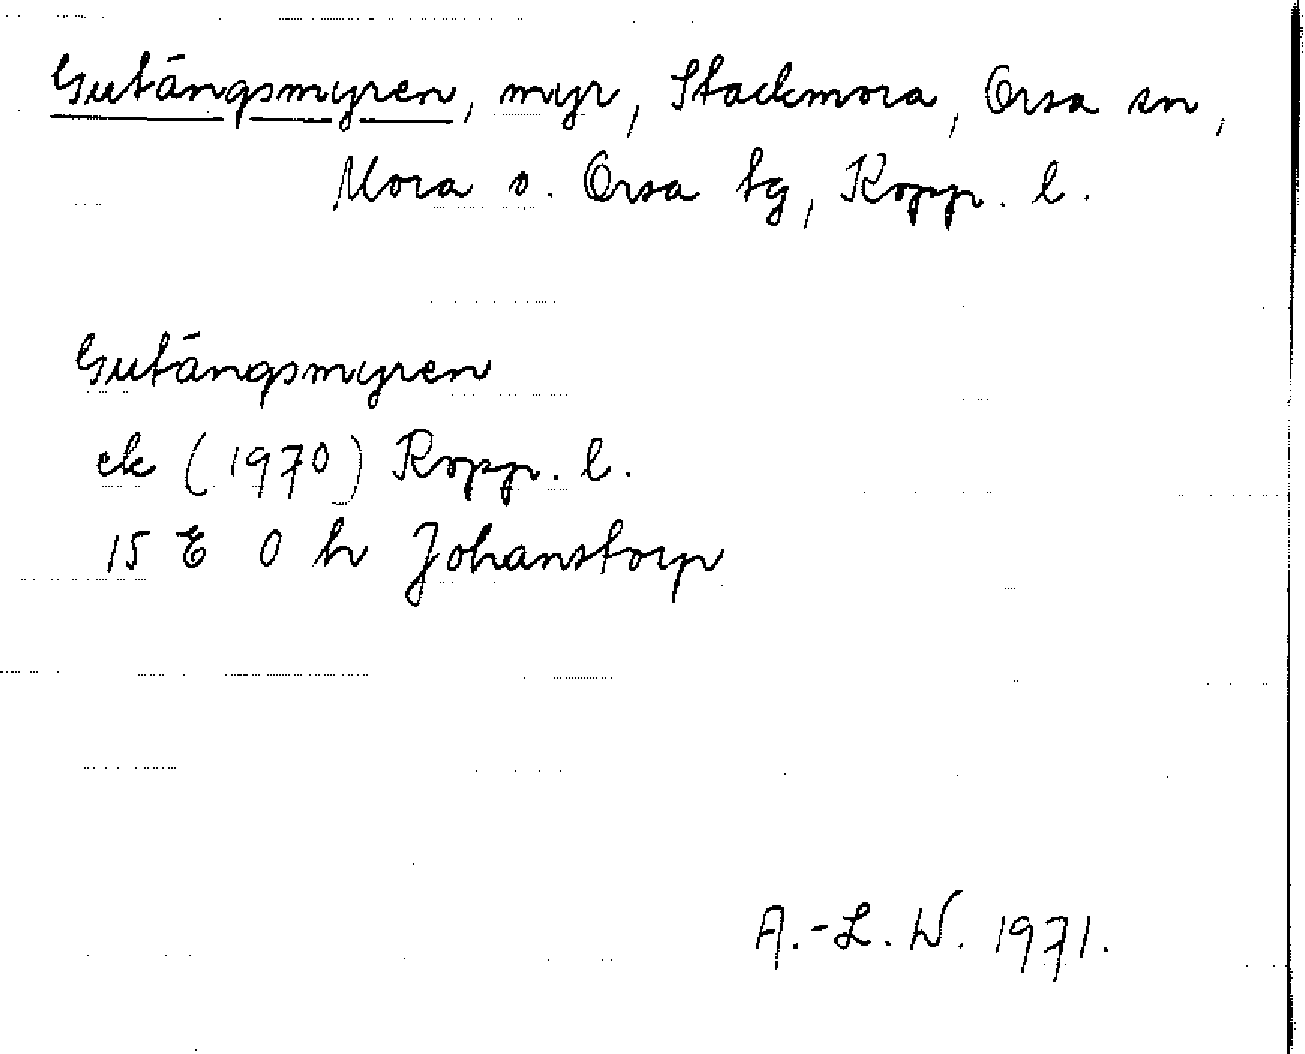 Gutängsmyren, myr, Stackmora, Orsa sn,
Mora o. Orsa tg, Kopp. l.
Gutängsmyren
ek (1970) Kopp. l.
15 E 0 h Johanstorp
A.-L. W. 1971.